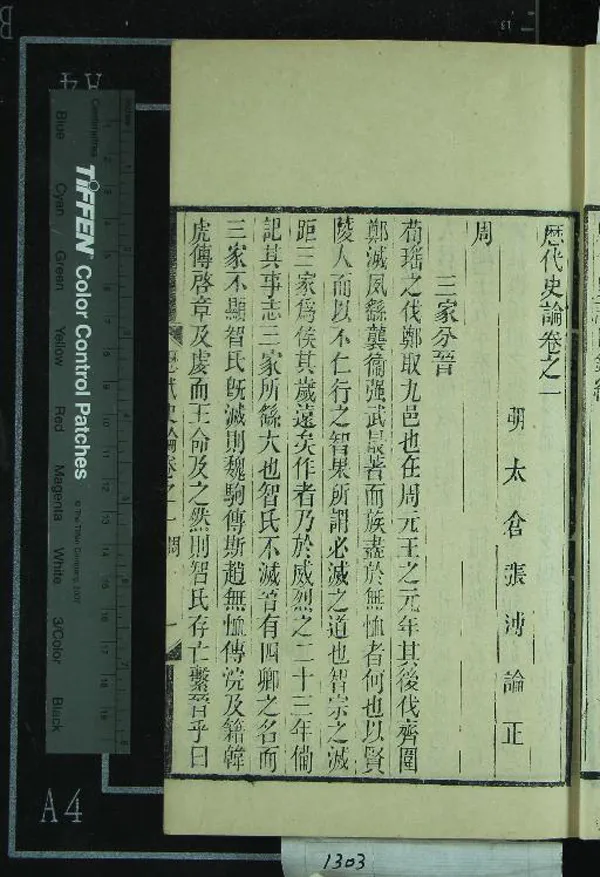 歷代史論卷之一
明太倉張溥論正
周
三家分晉
荀瑤之伐鄭取九邑也在周元王之元年其後伐齊圍
鄭滅夙繇襲衞强武最著而族盡於無恤者何也以賢
陵人而以不仁行之智果所謂必滅之道也智宗之滅
距三家爲侯其歲遠矣作者乃於威烈之二十三年備
記其事志三家所繇大也智氏不滅晉有四卿之名而
三家不顯智氏旣滅則魏駒傳斯趙無恤傳浣及籍韓
虎傳啓章及虔而王命及之然則智氏存亡繫晉乎曰
歷代史論卷之一 周 一
A4
TIFFEN® Color Control Patches
© The Tiffen Company, 2007
Centimetres
Inches
Blue
Cyan
Green
Yellow
Red
Magenta
White
3/Color
Black
A4
1303
13
B